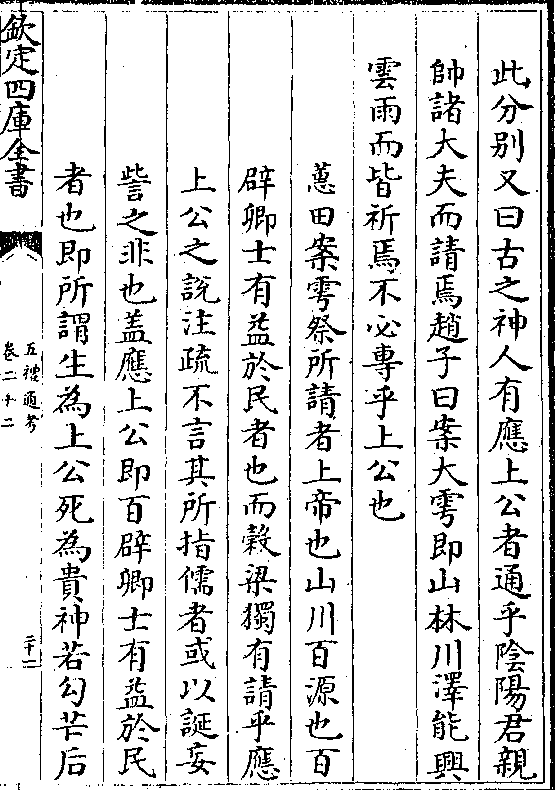 此分别又曰古之神人有應上公者通乎陰陽君親
帥諸大夫而請焉趙子曰案大雩即山林川澤能興
雲雨而皆祈焉不必專乎上公也
蕙田案雩祭所請者上帝也山川百源也百
辟卿士有益於民者也而榖梁獨有請乎應
上公之說注疏不言其所指儒者或以誕妄
訾之非也蓋應上公即百辟卿士有益於民
者也即所謂生為上公死為貴神若勾芒后
欽定四庫全書
五禮通考
卷二十二
二十二